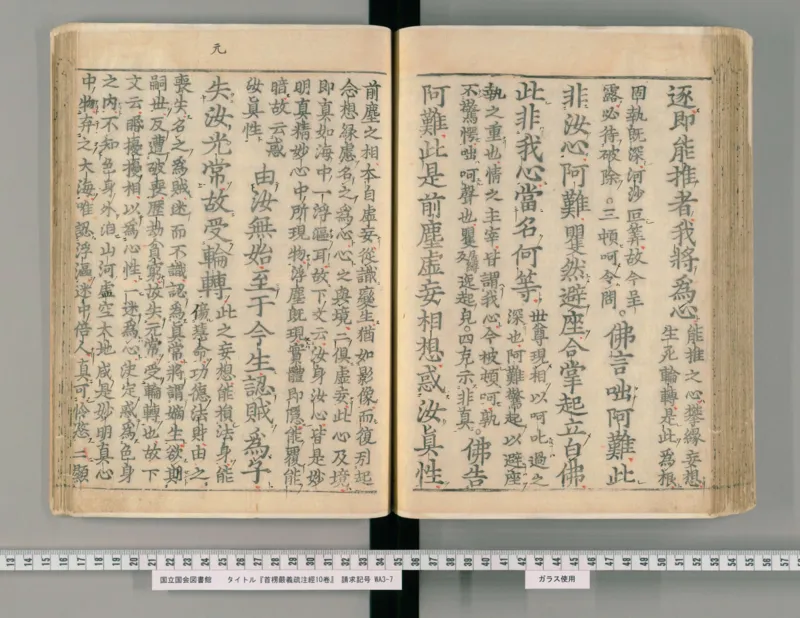 逐即能推者我將為心
能推之心攀緣妄想
生死輪轉是此為根
固執既深河沙叵筭故今至
露必待破除。三頓呵令問
。佛言咄阿難此
非汝心阿難矍然避座合掌起立白佛
此非我心當名何等
世尊現相以呵叱過之
深也阿難驚起以避座
執之重也情之主宰甘謂我心今被頓呵孰
不驚愕咄呵聲也矍遽起皃。四克示非真。
佛告
阿難此是前塵虛妄相想惑汝真性
元
前塵之相本自虛妄從識變生猶如影像而復引起
念想緣慮名之為心心之與境二俱虛妄此心及境
即真如海中一浮漚耳故下文云汝身汝心皆是妙
明真精妙心中所現物浮塵既現實體即隱能覆能
暗故云惑
汝真性
由汝無始至于今生認賊為子
失汝元常故受輪轉
此之妄想能損法身能
慧命功德法財由之
喪失名之為賊迷而不識認為真常將謂嫡生欲期
嗣世反遭破喪歷劫貧窮故失元常受輪轉也故下
文云擾擾相以為心性一迷為心決定惑為色身
之內不知色身外洎山河虛空大地咸是妙明真心
中物弃之大海唯認浮漚迷中倍人真可怜愍 二顯
13 14 15 16 17 18 19 20 21 22 23 24 25 26 27 28 29 30 31 32 33 34 35 36 37 38 39 40 41 42 43 44 45 46 47 48 49 50 51 52 53 54 55 56 57
国立国会図書館 タイトル『首楞嚴義疏注經10巻』 請求記号 WA3-7
ガラス使用